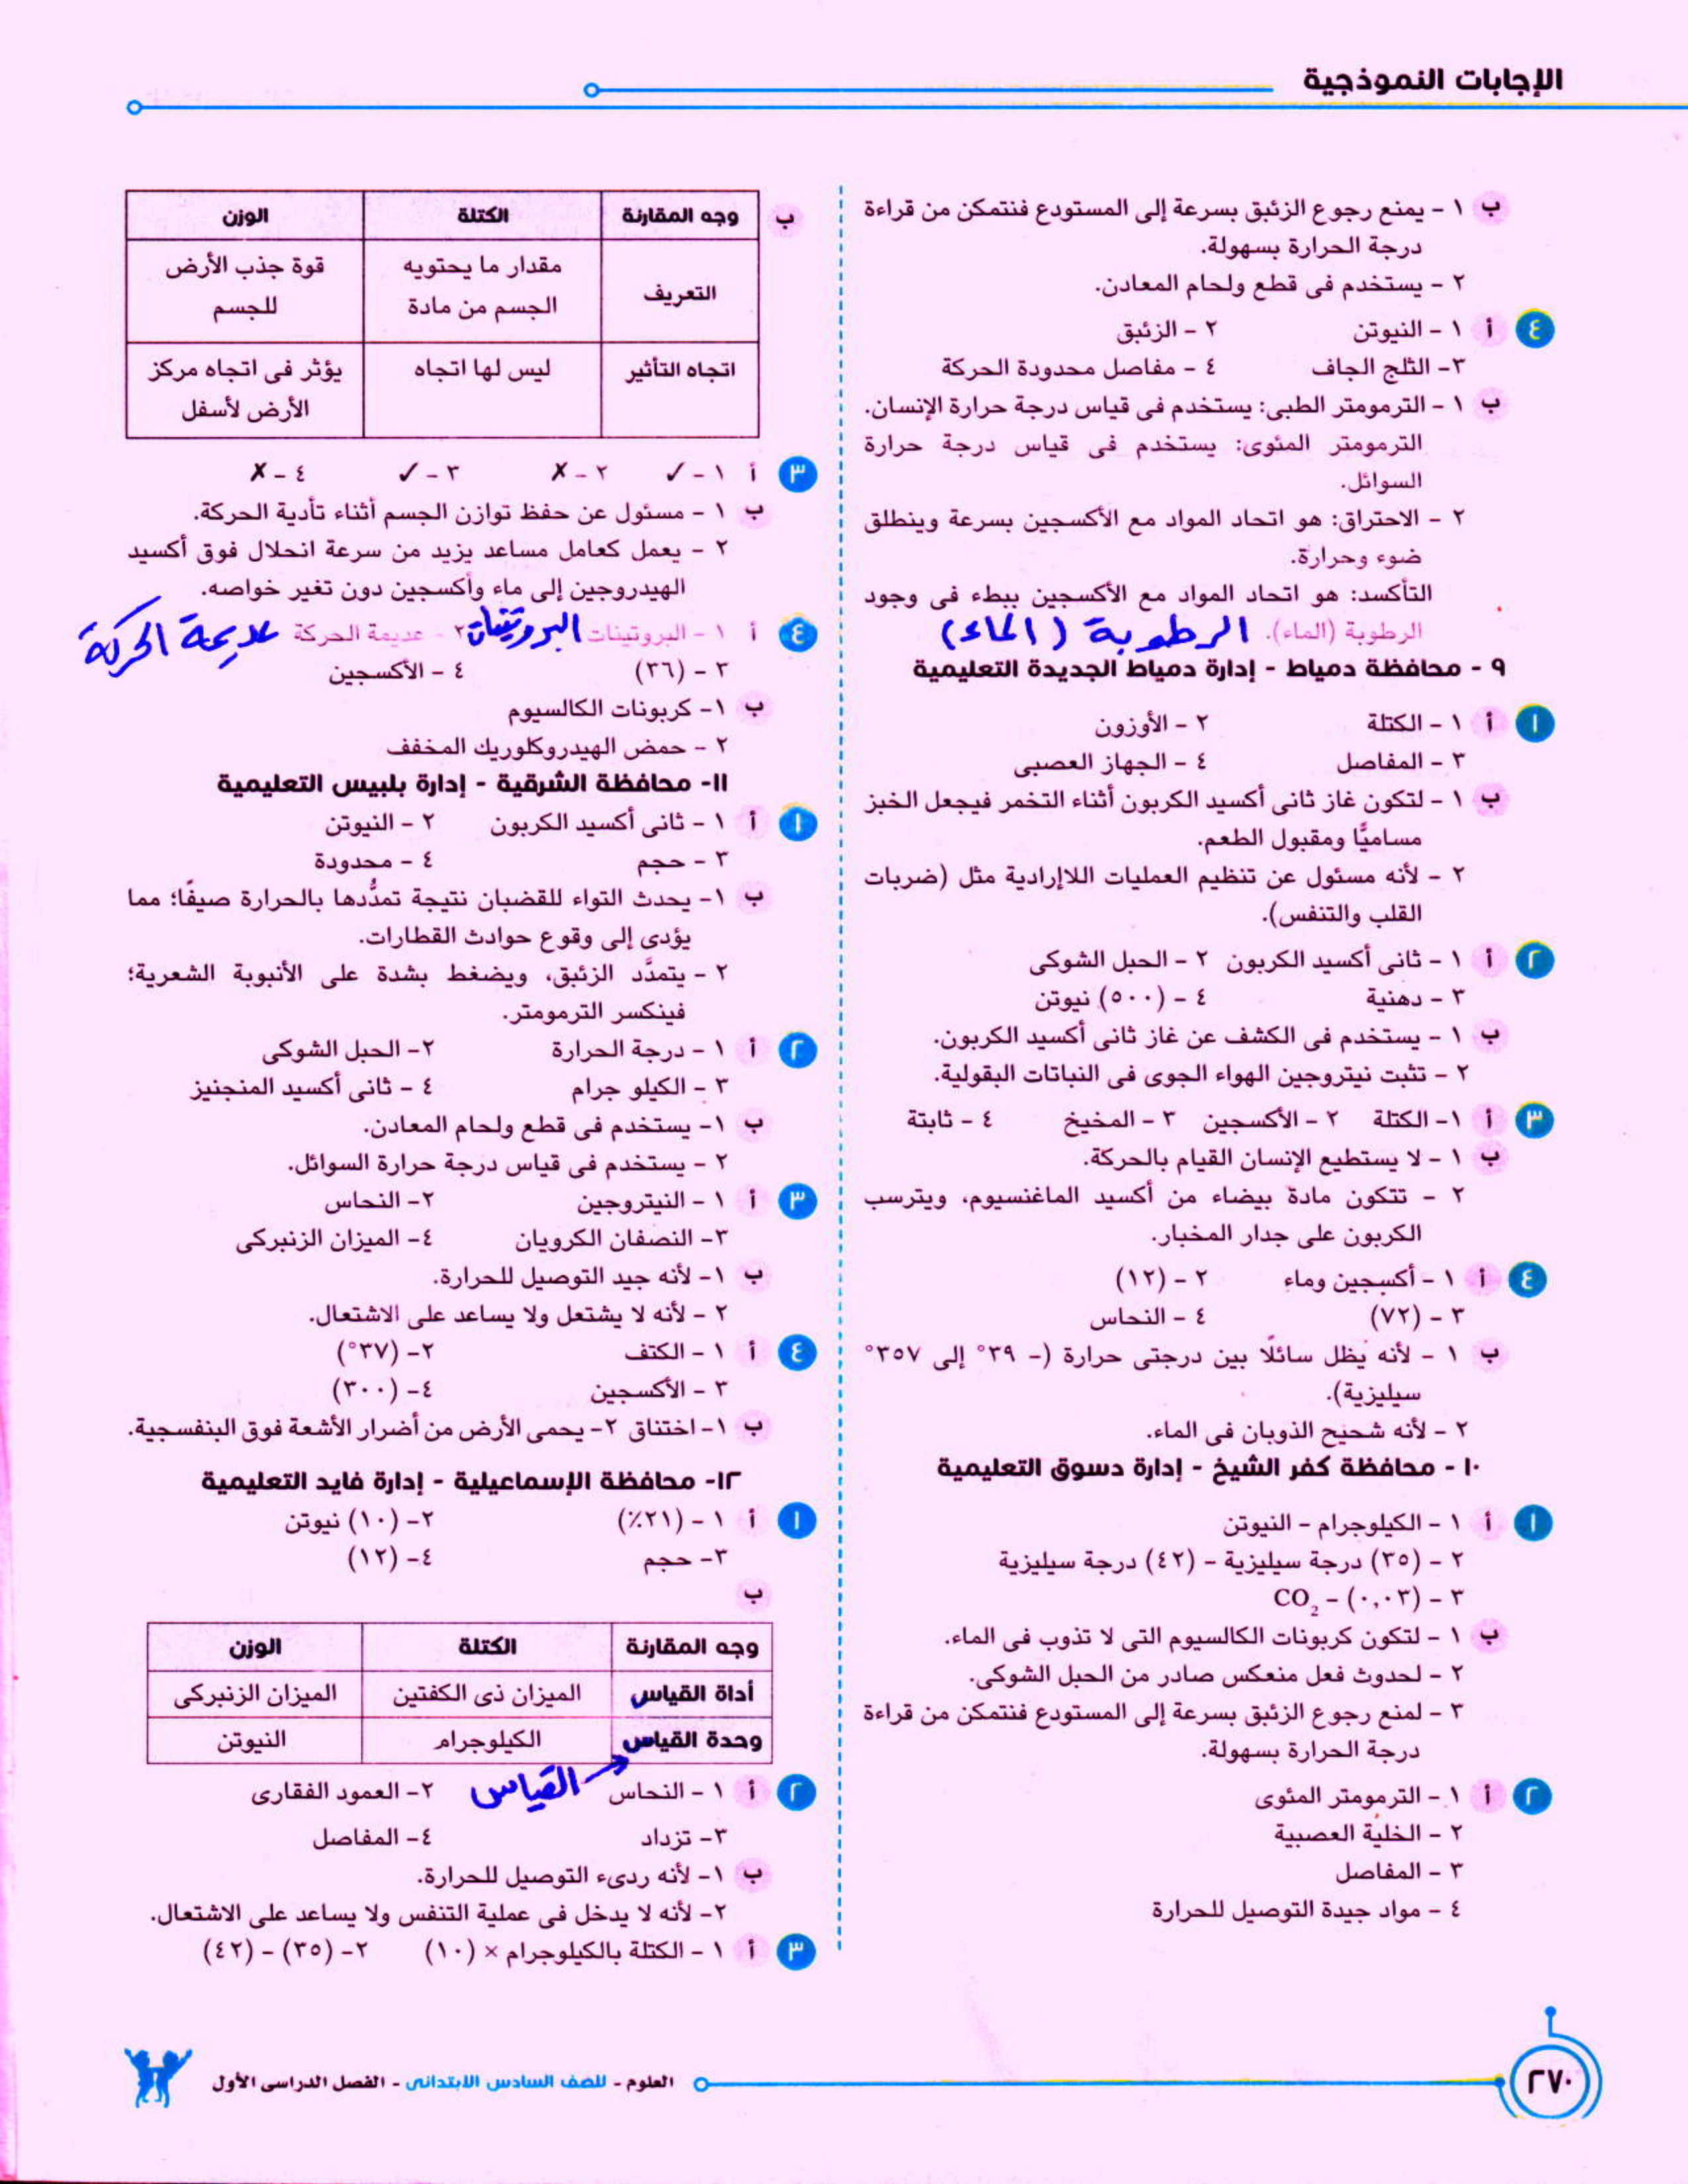 الإجابات النموذجية
ب ١ - يمنع رجوع الزئبق بسرعة إلى المستودع فنتمكن من قراءة
درجة الحرارة بسهولة.
٢ - يستخدم فى قطع ولحام المعادن.
٤ أ ١ - النيوتن ٢ - الزئبق
٣- الثلج الجاف ٤ - مفاصل محدودة الحركة
ب ١ - الترمومتر الطبى: يستخدم فى قياس درجة حرارة الإنسان.
الترمومتر المئوى: يستخدم فى قياس درجة حرارة
السوائل.
٢ - الاحتراق: هو اتحاد المواد مع الأكسجين بسرعة وينطلق
ضوء وحرارة.
التأكسد: هو اتحاد المواد مع الأكسجين ببطء فى وجود
الرطوبة (الماء). الرطوبة (الماء)
٩ - محافظة دمياط - إدارة دمياط الجديدة التعليمية
١ أ ١ - الكتلة ٢ - الأوزون
٣ - المفاصل ٤ - الجهاز العصبى
ب ١ - لتكون غاز ثانى أكسيد الكربون أثناء التخمر فيجعل الخبز
مساميًّا ومقبول الطعم.
٢ - لأنه مسئول عن تنظيم العمليات اللاإرادية مثل (ضربات
القلب والتنفس).
٢ أ ١ - ثانى أكسيد الكربون ٢ - الحبل الشوكى
٣ - دهنية ٤ - (٥٠٠) نيوتن
ب ١ - يستخدم فى الكشف عن غاز ثانى أكسيد الكربون.
٢ - تثبت نيتروجين الهواء الجوى فى النباتات البقولية.
٣ أ ١- الكتلة ٢ - الأكسجين ٣ - المخيخ ٤ - ثابتة
ب ١ - لا يستطيع الإنسان القيام بالحركة.
٢ - تتكون مادة بيضاء من أكسيد الماغنسيوم، ويترسب
الكربون على جدار المخبار.
٤ أ ١ - أكسجين وماء ٢ - (١٢)
٣ - (٧٢) ٤ - النحاس
ب ١ - لأنه يظل سائلًا بين درجتى حرارة (- ٣٩° إلى ٣٥٧°
سيليزية).
٢ - لأنه شحيح الذوبان فى الماء.
١٠ - محافظة كفر الشيخ - إدارة دسوق التعليمية
١ أ ١ - الكيلوجرام - النيوتن
٢ - (٣٥) درجة سيليزية - (٤٢) درجة سيليزية
٣ - (٠,٠٣) - CO₂
ب ١ - لتكون كربونات الكالسيوم التى لا تذوب فى الماء.
٢ - لحدوث فعل منعكس صادر من الحبل الشوكى.
٣ - لمنع رجوع الزئبق بسرعة إلى المستودع فنتمكن من قراءة
درجة الحرارة بسهولة.
٢ أ ١ - الترمومتر المئوى
٢ - الخلية العصبية
٣ - المفاصل
٤ - مواد جيدة التوصيل للحرارة
ب
وجه المقارنة الكتلة الوزن
التعريف مقدار ما يحتويه الجسم من مادة قوة جذب الأرض للجسم
اتجاه التأثير ليس لها اتجاه يؤثر فى اتجاه مركز الأرض لأسفل
٣ أ ١ - ✓ ٢ - ✗ ٣ - ✓ ٤ - ✗
ب ١ - مسئول عن حفظ توازن الجسم أثناء تأدية الحركة.
٢ - يعمل كعامل مساعد يزيد من سرعة انحلال فوق أكسيد
الهيدروجين إلى ماء وأكسجين دون تغير خواصه.
٤ أ ١ - البروتينات البروتينات ٢ - عديمة الحركة عديمة الحركة
٣ - (٣٦) ٤ - الأكسجين
ب ١- كربونات الكالسيوم
٢ - حمض الهيدروكلوريك المخفف
١١- محافظة الشرقية - إدارة بلبيس التعليمية
١ أ ١ - ثانى أكسيد الكربون ٢ - النيوتن
٣ - حجم ٤ - محدودة
ب ١- يحدث التواء للقضبان نتيجة تمدُّدها بالحرارة صيفًا؛ مما
يؤدى إلى وقوع حوادث القطارات.
٢ - يتمدَّد الزئبق، ويضغط بشدة على الأنبوبة الشعرية؛
فينكسر الترمومتر.
٢ أ ١ - درجة الحرارة ٢- الحبل الشوكى
٣ - الكيلو جرام ٤ - ثانى أكسيد المنجنيز
ب ١- يستخدم فى قطع ولحام المعادن.
٢ - يستخدم فى قياس درجة حرارة السوائل.
٣ أ ١ - النيتروجين ٢- النحاس
٣- النصفان الكرويان ٤- الميزان الزنبركى
ب ١- لأنه جيد التوصيل للحرارة.
٢ - لأنه لا يشتعل ولا يساعد على الاشتعال.
٤ أ ١ - الكتف ٢- (٣٧°)
٣ - الأكسجين ٤- (٣٠٠)
ب ١- اختناق ٢- يحمى الأرض من أضرار الأشعة فوق البنفسجية.
١٢- محافظة الإسماعيلية - إدارة فايد التعليمية
١ أ ١ - (٢١٪) ٢- (١٠) نيوتن
٣- حجم ٤- (١٢)
ب
وجه المقارنة الكتلة الوزن
أداة القياس الميزان ذى الكفتين الميزان الزنبركى
وحدة القياس الكيلوجرام النيوتن
القياس
٢ أ ١ - النحاس ٢- العمود الفقارى
٣- تزداد ٤- المفاصل
ب ١- لأنه ردىء التوصيل للحرارة.
٢- لأنه لا يدخل فى عملية التنفس ولا يساعد على الاشتعال.
٣ أ ١ - الكتلة بالكيلوجرام × (١٠) ٢- (٣٥) - (٤٢)
العلوم - للصف السادس الابتدائى - الفصل الدراسى الأول
٢٧٠